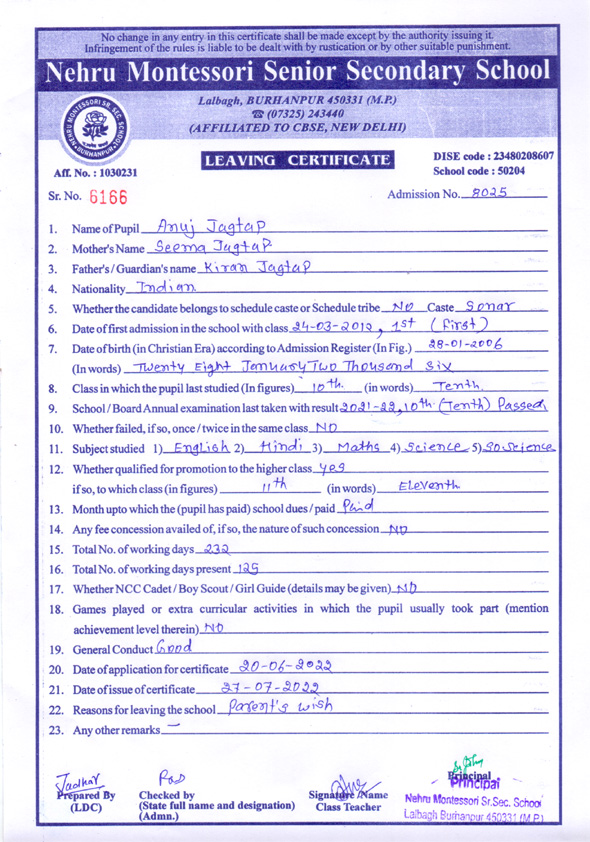 No change in any entry in this certificate shall be made except by the authority issuing it.
Infringement of the rules is liable to be dealt with by rustication or by other suitable punishment.
Nehru Montessori Senior Secondary School
Lalbagh, BURHANPUR 450331 (M.P.)
☎ (07325) 243440
(AFFILIATED TO CBSE, NEW DELHI)
NEHRU MONTESSORI SR. SEC. SCHOOL
BURHANPUR
Aff. No. : 1030231
LEAVING CERTIFICATE
DISE code : 23480208607
School code : 50204
Sr. No. 6166
Admission No. 8025
1. Name of Pupil Anuj Jagtap
2. Mother's Name Seema Jagtap
3. Father's / Guardian's name Kiran Jagtap
4. Nationality Indian
5. Whether the candidate belongs to schedule caste or Schedule tribe NO Caste Sonar
6. Date of first admission in the school with class 24-03-2012, 1st (First)
7. Date of birth (in Christian Era) according to Admission Register (In Fig.) 28-01-2006
(In words) Twenty Eight January Two Thousand Six
8. Class in which the pupil last studied (In figures) 10th (in words) Tenth
9. School / Board Annual examination last taken with result 2021-22, 10th (Tenth) Passed
10. Whether failed, if so, once / twice in the same class NO
11. Subject studied 1) English 2) Hindi 3) Maths 4) Science 5) SO.Science
12. Whether qualified for promotion to the higher class yes
if so, to which class (in figures) 11th (in words) Eleventh
13. Month upto which the (pupil has paid) school dues / paid Paid
14. Any fee concession availed of, if so, the nature of such concession NO
15. Total No. of working days 232
16. Total No. of working days present 125
17. Whether NCC Cadet / Boy Scout / Girl Guide (details may be given) NO
18. Games played or extra curricular activities in which the pupil usually took part (mention
achievement level therein) NO
19. General Conduct Good
20. Date of application for certificate 20-06-2022
21. Date of issue of certificate 27-07-2022
22. Reasons for leaving the school Parent's wish
23. Any other remarks —
Jadhav
Prepared By
(LDC)
Checked by
(State full name and designation)
(Admn.)
Signature / Name
Class Teacher
Principal
Principal
Nehru Montessori Sr.Sec. School
Lalbagh Burhanpur 450331 (M.P.)